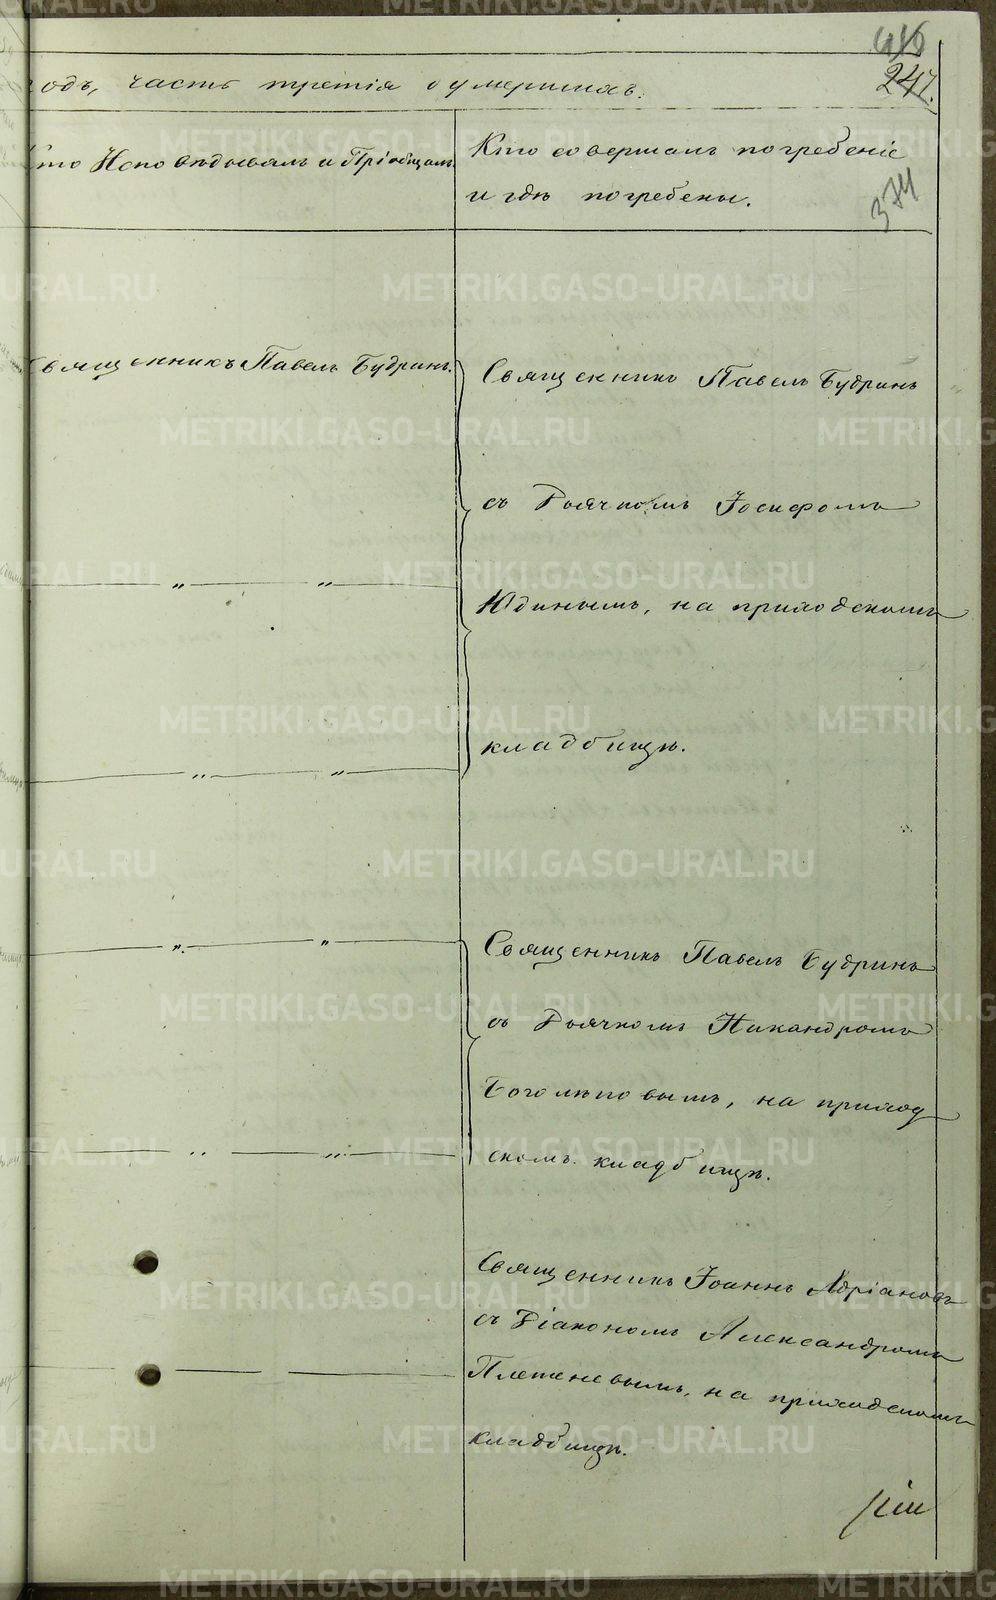 416
247.
годъ, часть третія о умершихъ.
Кто Исповѣдывалъ и Пріобщалъ
Кто совершалъ погребеніе
и гдѣ погребены.
374
Священникъ Павелъ Будринъ.
Священникъ Павелъ Будринъ
съ Дьячкомъ Іосифомъ
Юдинымъ, на приходскомъ
кладбищѣ.
Священникъ Павелъ Будринъ
съ Дьячкомъ Никандромъ
Боголѣповымъ, на приход
скомъ кладбищѣ.
Священникъ Іоаннъ Адріановъ
съ Діакономъ Александромъ
Плетеневымъ, на приходскомъ
кладбищѣ.
METRIKI.GASO-URAL.RU